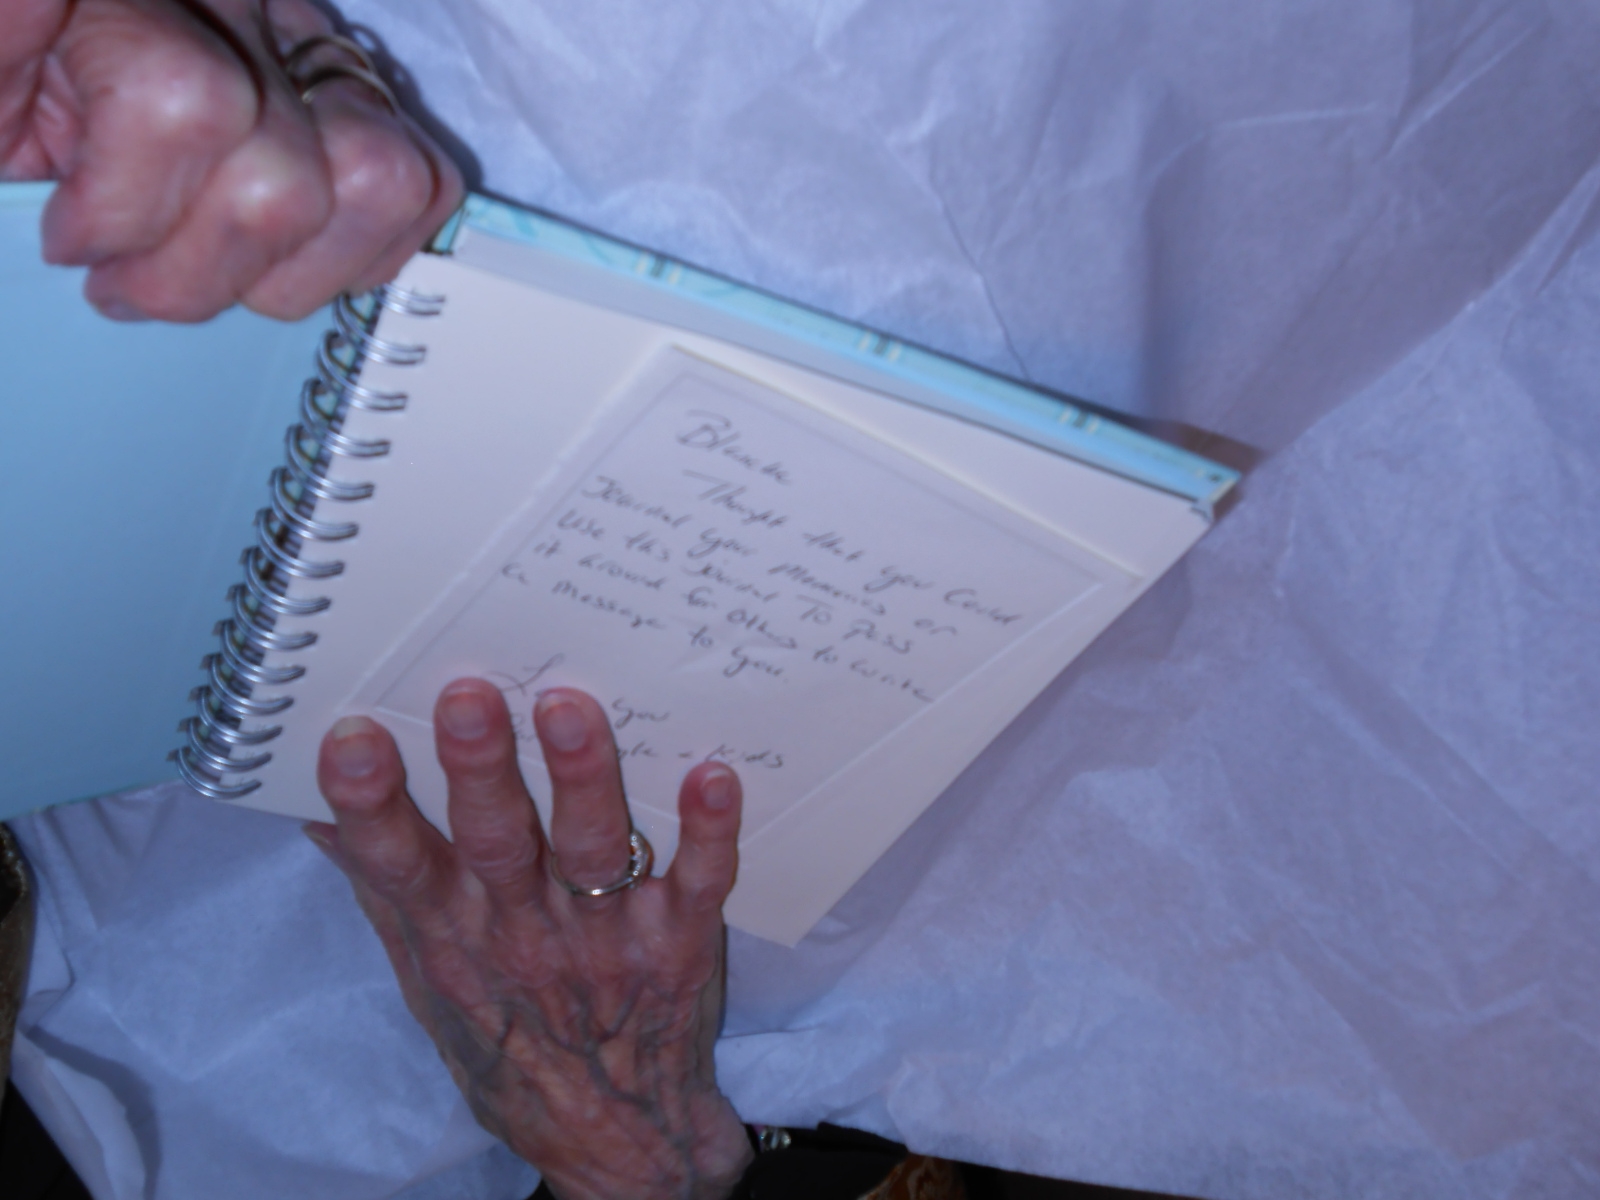 Blanche
Thought that you Could
Journal your Memories or
Use this Journal To Pass
it around for others to write
a message to you.
you
Kids